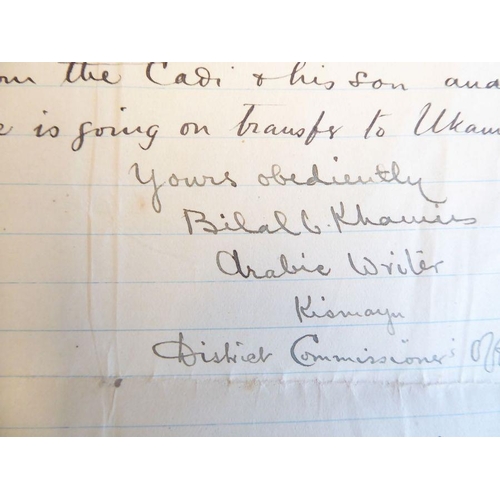 om the Cadi & his son and
e is going on transfer to Ukam
Yours obediently
Bilal b. Khamis
Arabic Writer
Kismayu
District Commissioner's Off